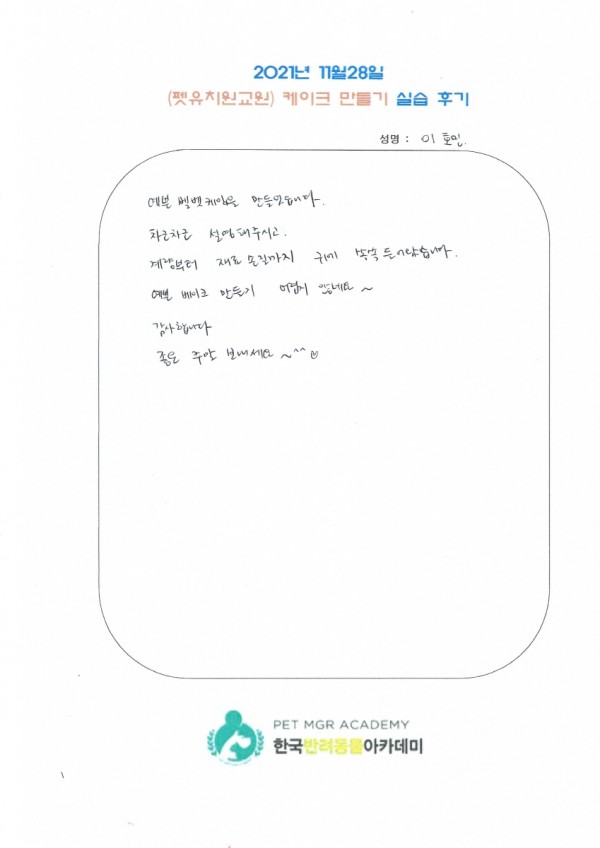 2021년 11월28일
(펫유치원교원) 케이크 만들기 실습 후기
성명 : 이호민.
예쁜 벨벳케잌을 만들었습니다.
차근차근 설명해주시고.
계량부터 재료손질까지 귀에 쏙쏙 들어왔습니다.
예쁜 케이크 만들기 어렵지 않네요~
감사합니다
좋은 주말 보내세요~^^
PET MGR ACADEMY
한국반려동물아카데미